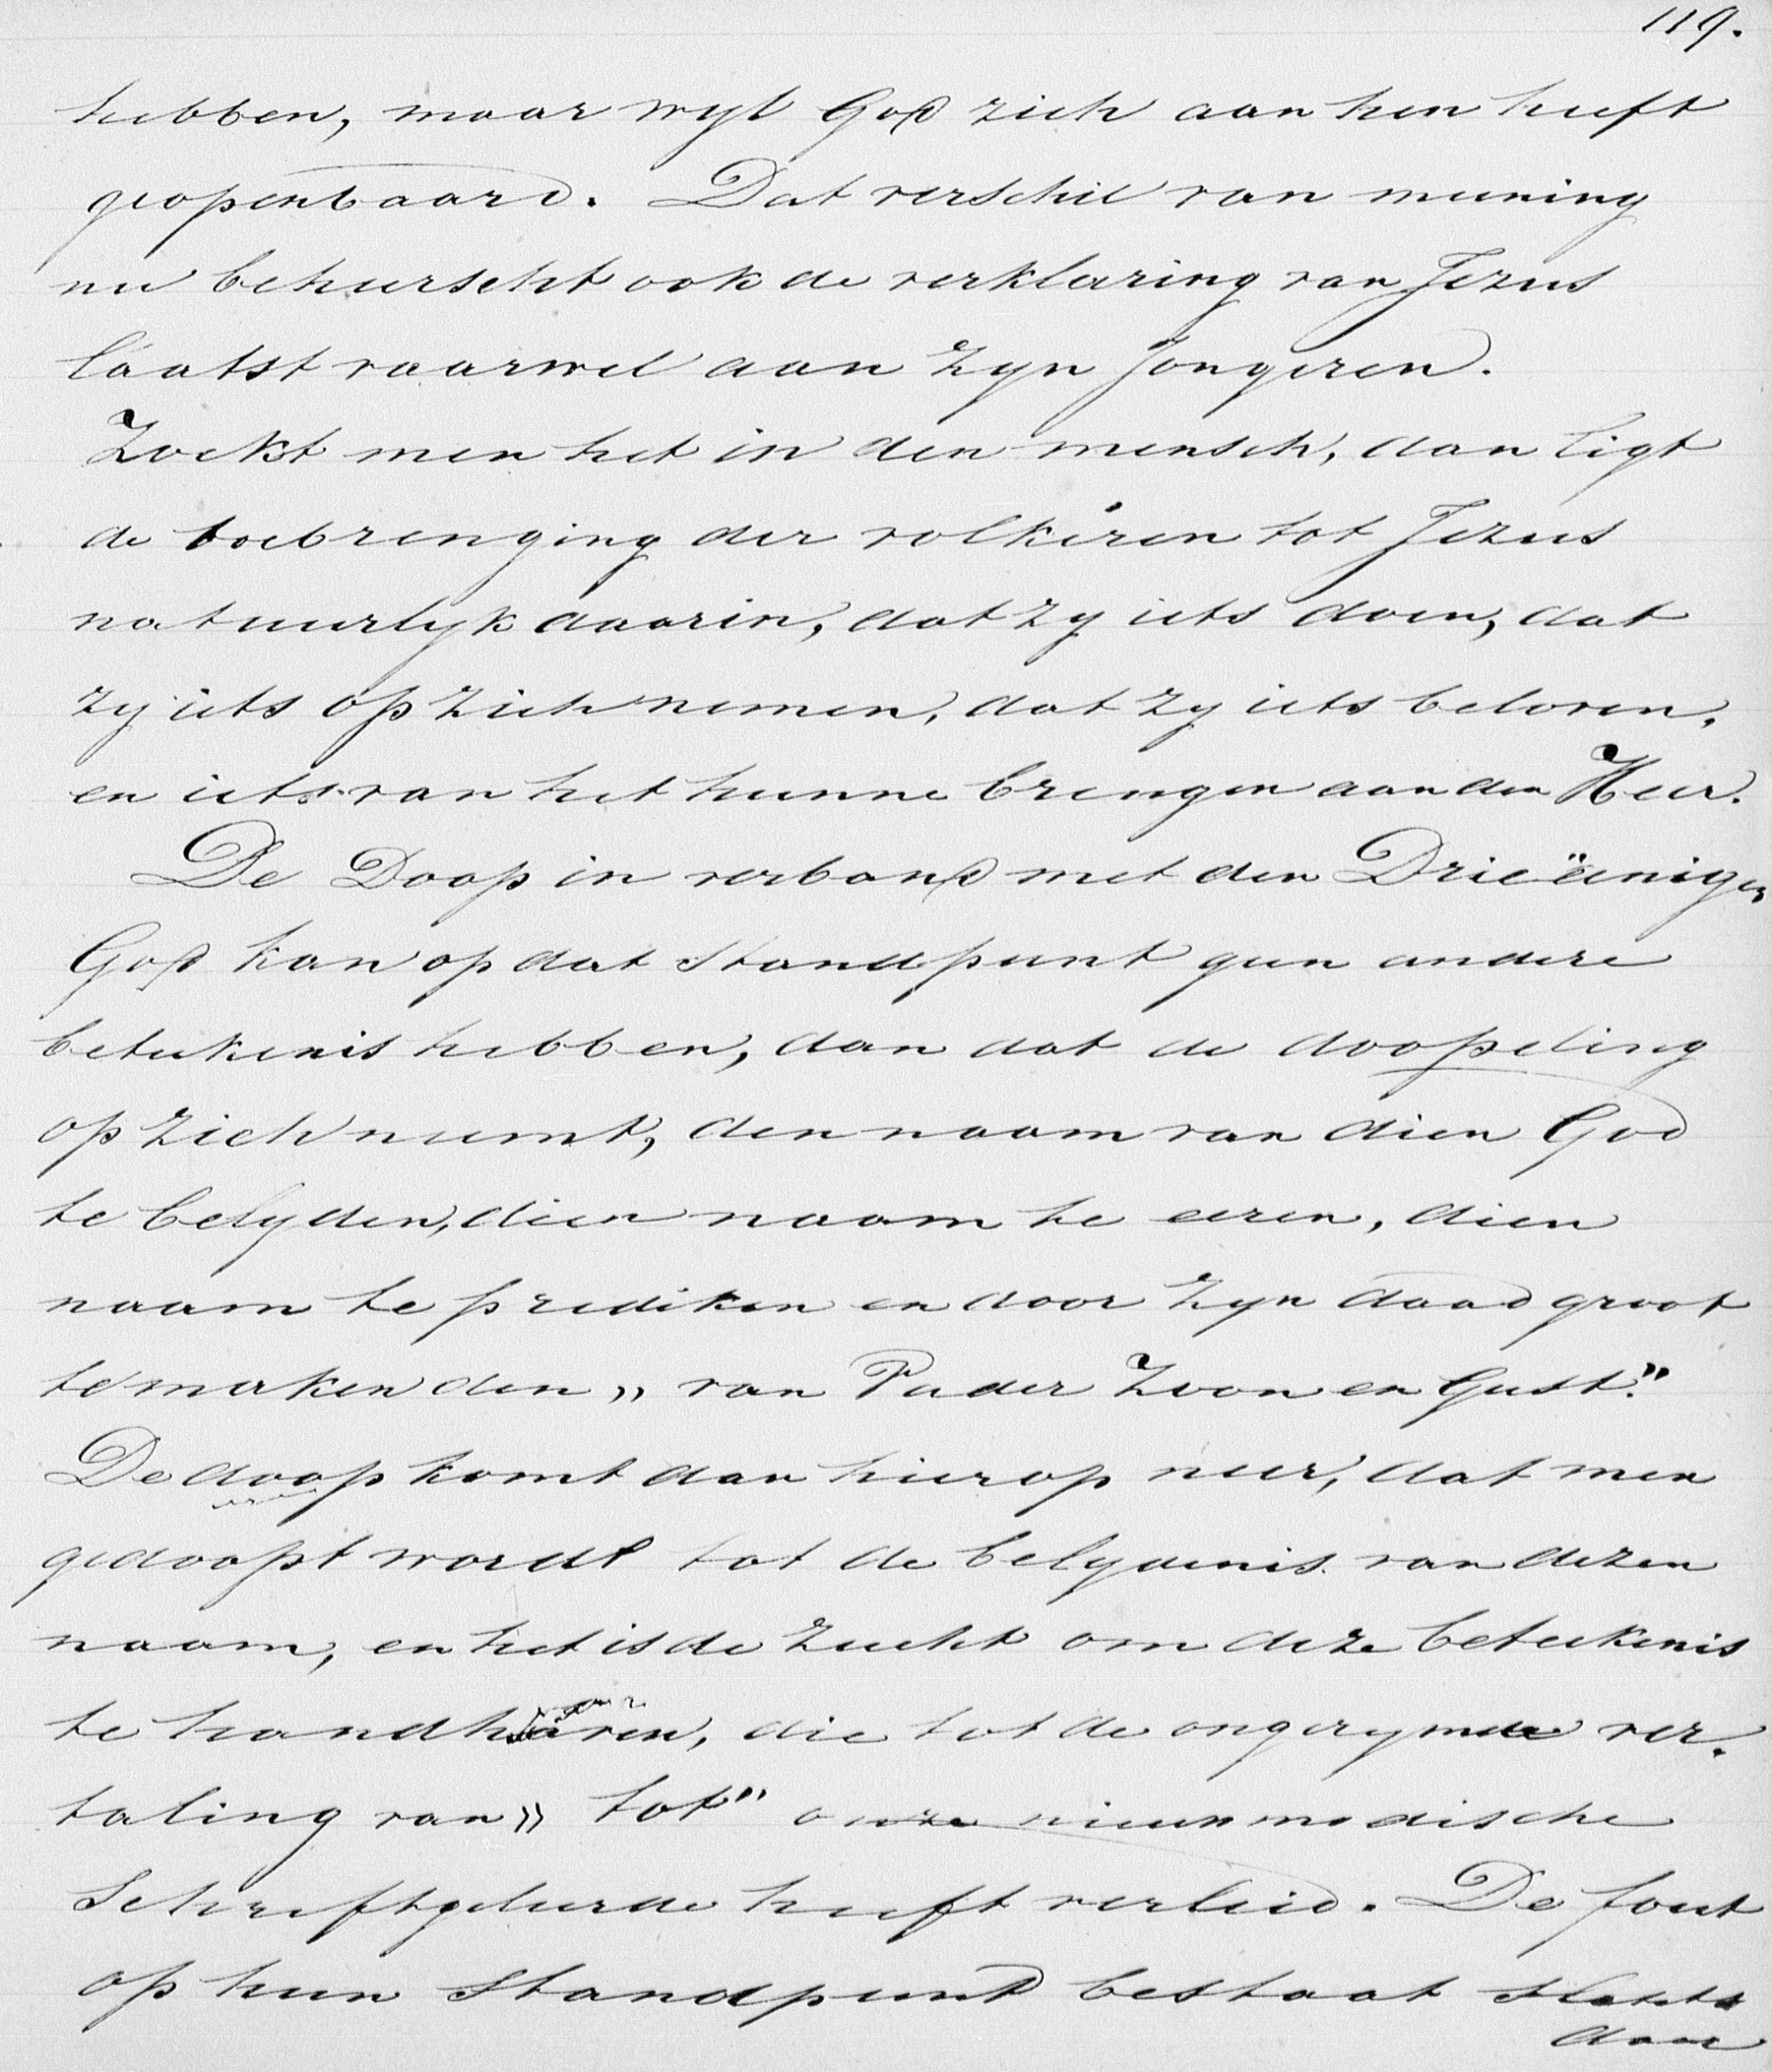 119.
hebben, maar wyl God zich aan hen heeft
geopenbaard. Dat verschil van meening
nu beheerscht ook de verklaring van Jezus
laatst vaarwel aan zyn Jongeren.
Zoekt men het in den mensch, dan ligt
de toebrenging der volkeren tot Jezus
natuurlyk daarin, dat zy iets doen, dat
zy iets op zich nemen, dat zy iets beloven,
en iets van het hunne brengen aan den Heer.
De Doop in verband met den Drieëenigen
God kan op dat standpunt geen andere
beteekenis hebben, dan dat de doopeling
op zich neemt, den naam van dien God
te belyden, dien naam te eeren, dien
naam te prediken en door zyn daad groot
te maken den „ van Vader Zoon en Geest."
De doop komt dan hierop neer, dat men
gedoopt wordt tot de belydenis van dezen
naam, en het is de zucht om deze beteekenis
te handhaven, die tot de ongerymde ver-
taling van „ tot" onze nieuwmodische
Schriftgeleerde heeft verleid. De fout
op hun standpunt bestaat slechts
daar